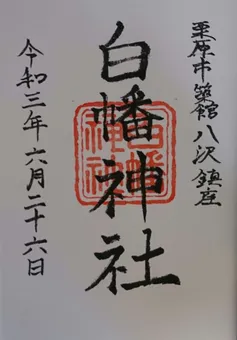 栗原市築館八沢鎮座
白幡神社
白幡神社
令和三年六月二十六日